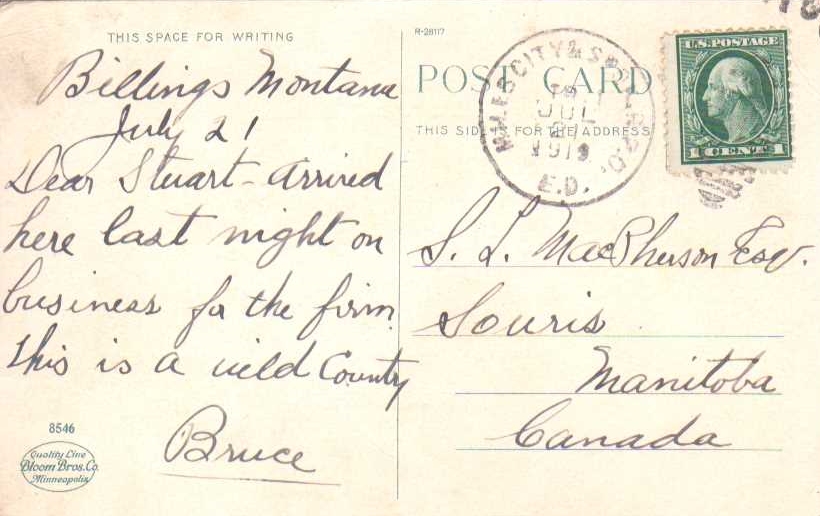 THIS SPACE FOR WRITING
Billings Montana
July 21
Dear Stuart - arrived
here last night on
business for the firm
this is a wild County
Bruce
8546
Quality Line
Bloom Bros. Co.
Minneapolis
R-28117
POST CARD
THIS SIDE IS FOR THE ADDRESS
MILES CITY &
JUL
21
E.D.
U.S. POSTAGE
1 CENT 1
S. L. MacPherson Esq.
Souris
Manitoba
Canada